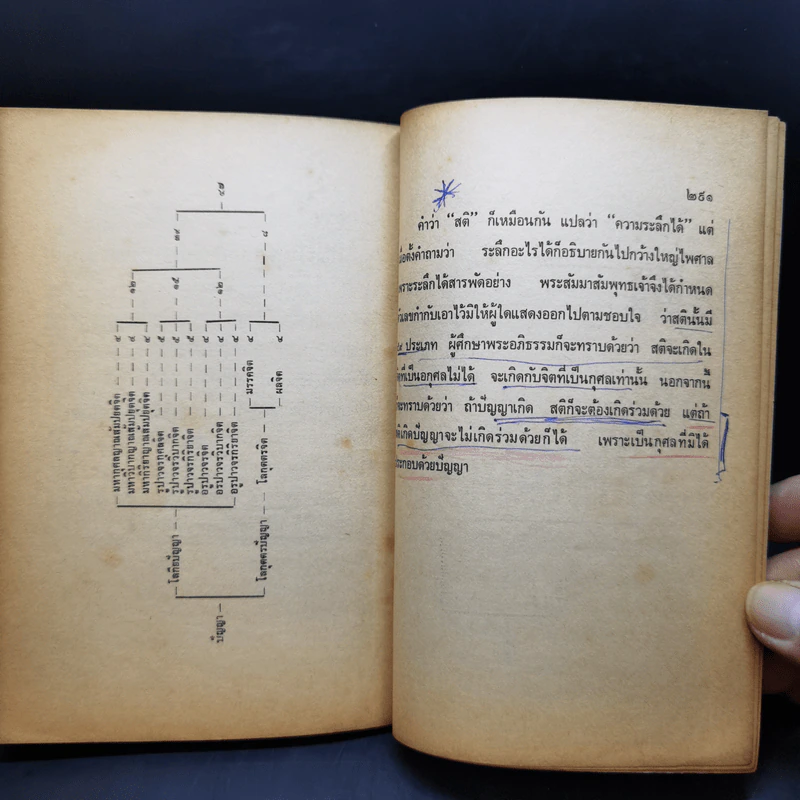 ปัญญา
โลกียปัญญา
โลกุตตรปัญญา
มหากุศลญาณสัมปยุตตจิต ๔
มหาวิบากญาณสัมปยุตตจิต ๔
มหากิริยาญาณสัมปยุตตจิต ๔
๑๒
รูปาวจรกุศลจิต ๕
รูปาวจรวิบากจิต ๕
รูปาวจรกิริยาจิต ๕
๑๕
อรูปาวจรกุศลจิต ๔
อรูปาวจรวิบากจิต ๔
อรูปาวจรกิริยาจิต ๔
๑๒
๓๙
โลกุตตรจิต
มรรคจิต ๔
ผลจิต ๔
๘
๔๗
๒๕๑
คำว่า “สติ” ก็เหมือนกัน แปลว่า “ความระลึกได้” แต่
ตั้งคำถามว่า ระลึกอะไรได้ก็อธิบายกันไปกว้างใหญ่ไพศาล
เพราะระลึกได้สารพัดอย่าง พระสัมมาสัมพุทธเจ้าจึงได้กำหนด
กำกับเอาไว้มิให้ผู้ใดแสดงออกไปตามชอบใจ ว่าสตินั้นมี
ประเภท ผู้ศึกษาพระอภิธรรมก็จะทราบด้วยว่า สติจะเกิดใน
ที่เป็นอกุศลไม่ได้ จะเกิดกับจิตที่เป็นกุศลเท่านั้น นอกจากนี้
จะทราบด้วยว่า ถ้าปัญญาเกิด สติก็จะต้องเกิดร่วมด้วย แต่ถ้า
เกิดปัญญาจะไม่เกิดร่วมด้วยก็ได้ เพราะเป็นกุศลที่มิได้
ประกอบด้วยปัญญา